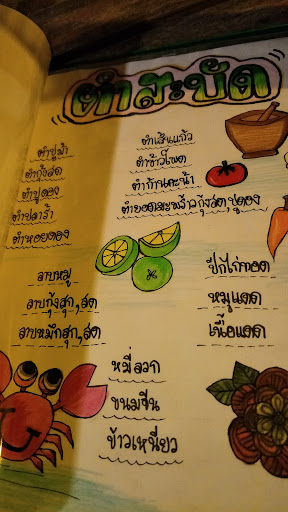 ตำสะบัด
ตำปูม้า
ตำกุ้งสด
ตำปูดอง
ตำปลาร้า
ตำหอยดอง
ตำเส้นแก้ว
ตำข้าวโพด
ตำก้านคะน้า
ตำยอดมะพร้าวกุ้งสด,ปูดอง
ลาบหมู
ลาบกุ้งสุก,สด
ลาบหมึกสุก,สด
ปีกไก่ทอด
หมูแดด
เนื้อแดด
หมี่ลวก
ขนมจีน
ข้าวเหนียว